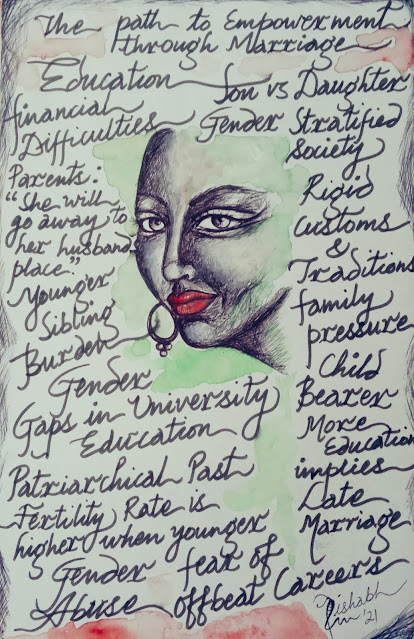 The path to Empowerment
through Marriage
Education
Son vs Daughter
financial
Difficulties
Gender Stratified
Society
Parents.
"She will
go away to
her husband
place."
Rigid
Customs
&
Traditions
Younger
Sibling
Burden
family
pressure
Child
Bearer
Gender
Gaps in University
Education
More
Education
implies
Late
Marriage
Patriarchical Past
Fertility Rate is
higher when younger
Gender fear of
Abuse offbeat Careers
Rishabh
'21